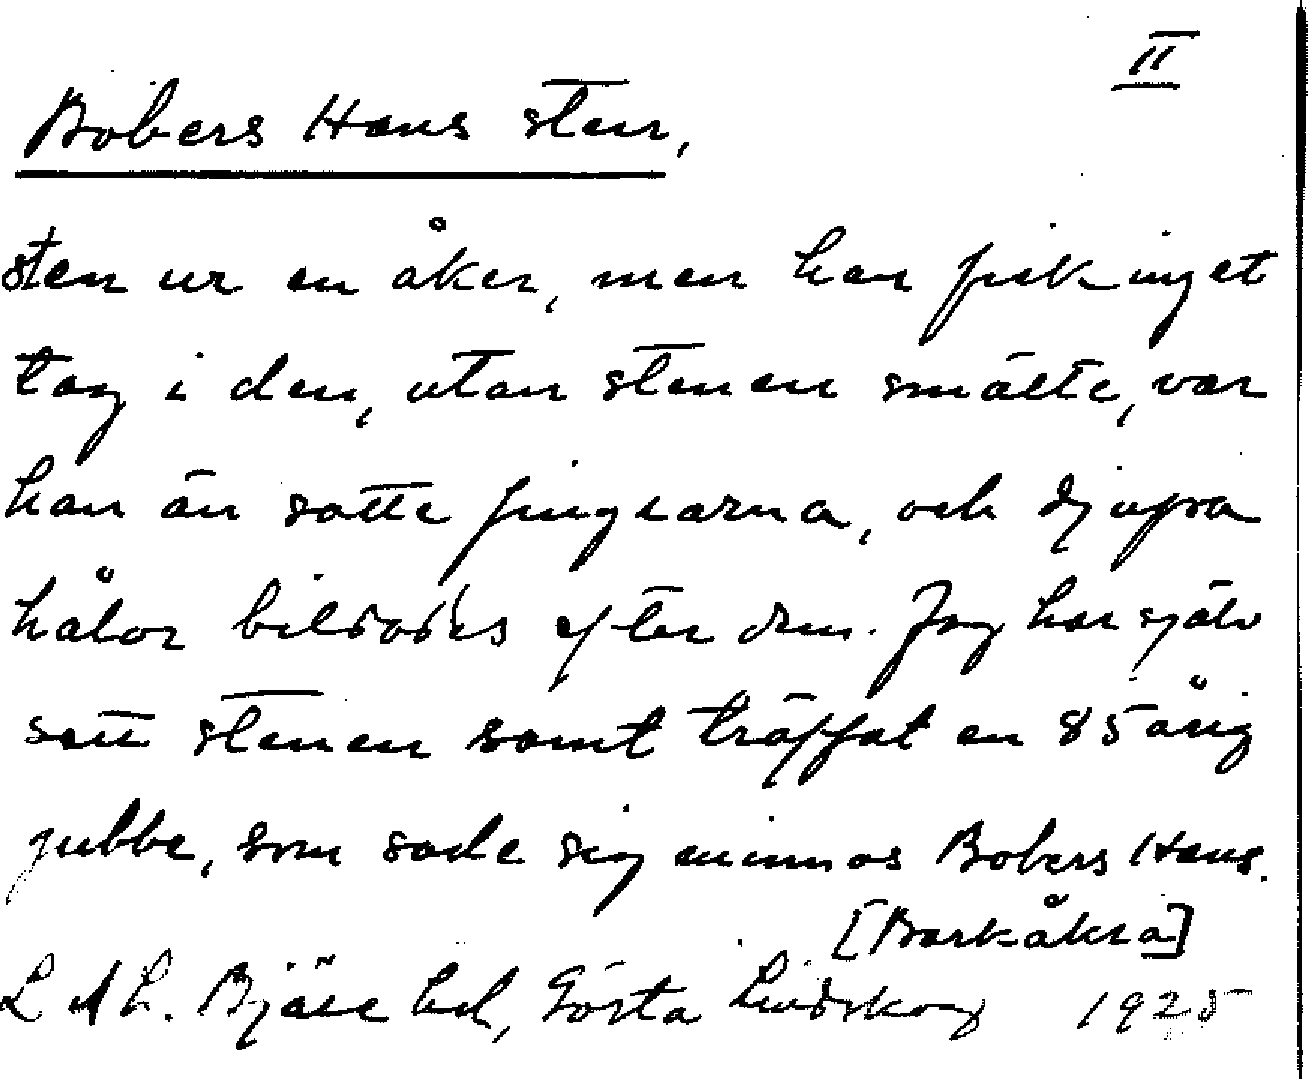 II
Bobers Hans sten,
sten ur en åker, men han fick inget
tag i den, utan stenen smälte, var
han än satte fingrarna, och djupa
hålor bildades efter dem. Jag har själv
sett stenen samt träffat en 85 årig
gubbe, som sade sig minnas Bobers Hans.
[Barkåkra]
L A L. Bjäre hd, Gösta Lindskog 1925